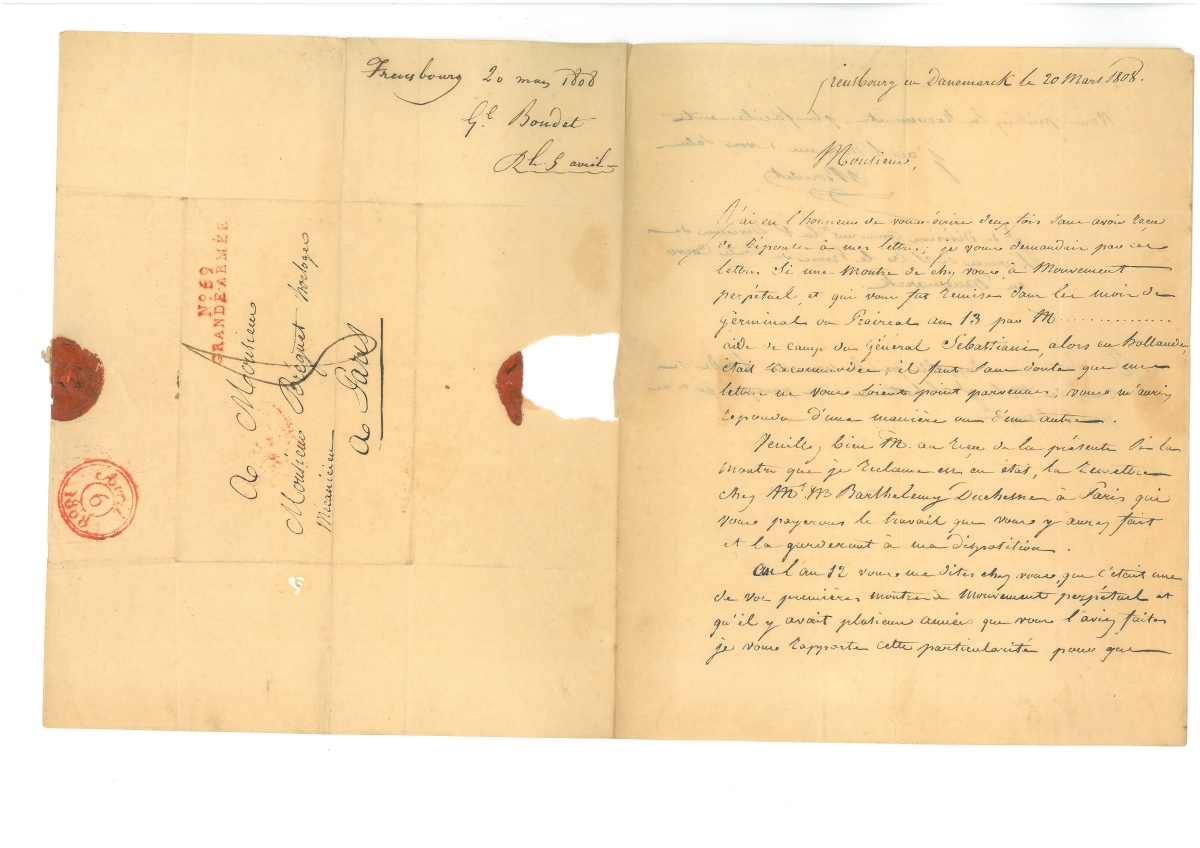 Frensbourg 20 mars 1808
Gl Boudet
Rl. 5 avril
No 69
GRANDE ARMÉE
A Monsieur
Monsieur Breguet horloger
Mecanicien
A Paris
Avril
6
1808
frensbourg en Danemarck le 20 Mars 1808.
Monsieur,
J'ai eu l'honneur de vous écrire deux fois sans avoir reçu
de réponse à mes lettres; je vous demandais par ces
lettres si une Montre de chez vous, à Mouvement
perpétuel, et qui vous fut remise dans les mois de
Germinal ou Praireal an 13 par M..............
aide de camp du Général Sébastiani, alors en hollande,
était racommodée; il faut sans doute que mes
lettres ne vous soient point parvenues; vous m'auriez
repondu d'une manière ou d'un autre.
Veuillez bien M. au reçu de la présente si la
montre que je reclame est en état, la remettre
chez Mrs Barthelemy Duchesne à Paris qui
vous payerons le travail que vous y aurez fait
et la garderont à ma disposition.
en l'an 12 vous me dites chez vous, que c'était une
de vos premières montres à mouvement perpétuel et
qu'il y avait plusieurs années que vous l'aviez faite;
je vous rapporte cette particularité pour que